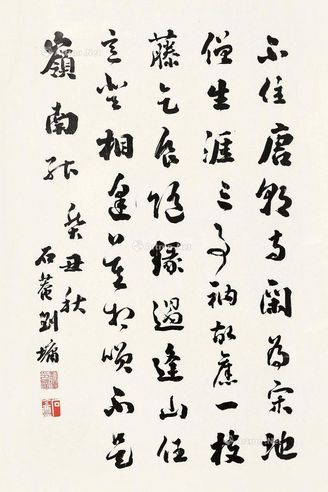 不住唐朝寺閑為宋地
僧生涯三事衲故舊一枝
藤乞食隨緣過逢山任
意登相逢莫相咲不是
嶺南能 癸丑秋
石菴劉墉